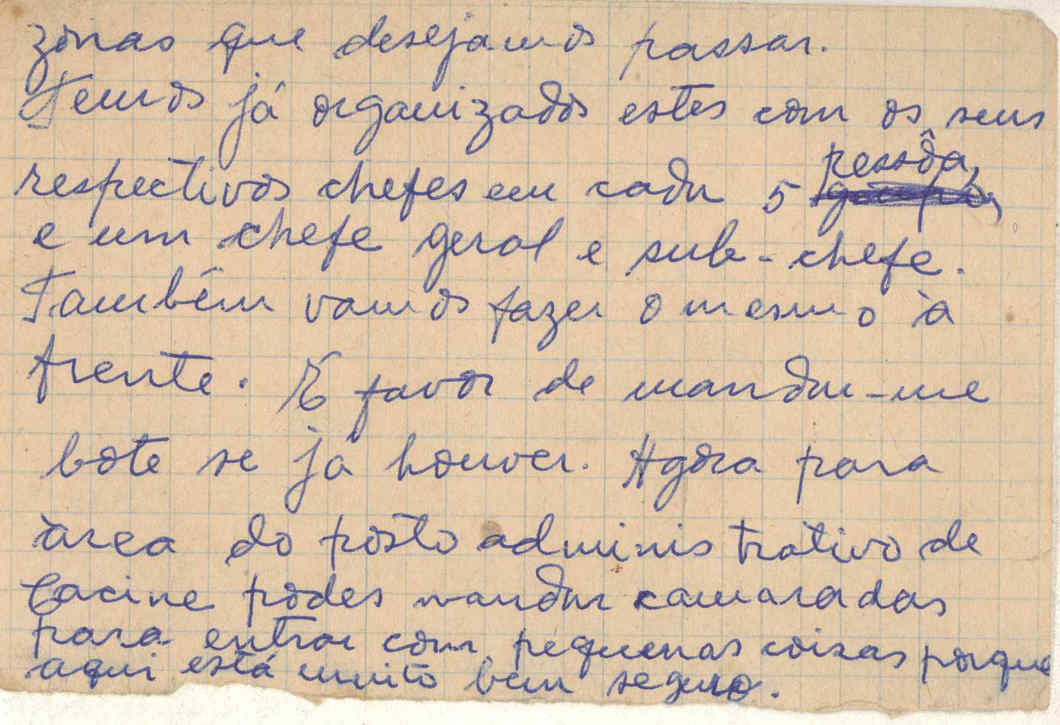 zonas que desejamos passar.
Temos já organizados estes com os seus
respectivos chefes em cada 5 pessôa,
e um chefe geral e sub-chefe.
Também vamos fazer o mesmo à
frente. É favor de mandar-me
bote se já houver. Agora para
àrea do pôsto administrativo de
Cacine pódes mandar camaradas
para entrar com pequenas coisas porque
aqui está muito bem seguro.